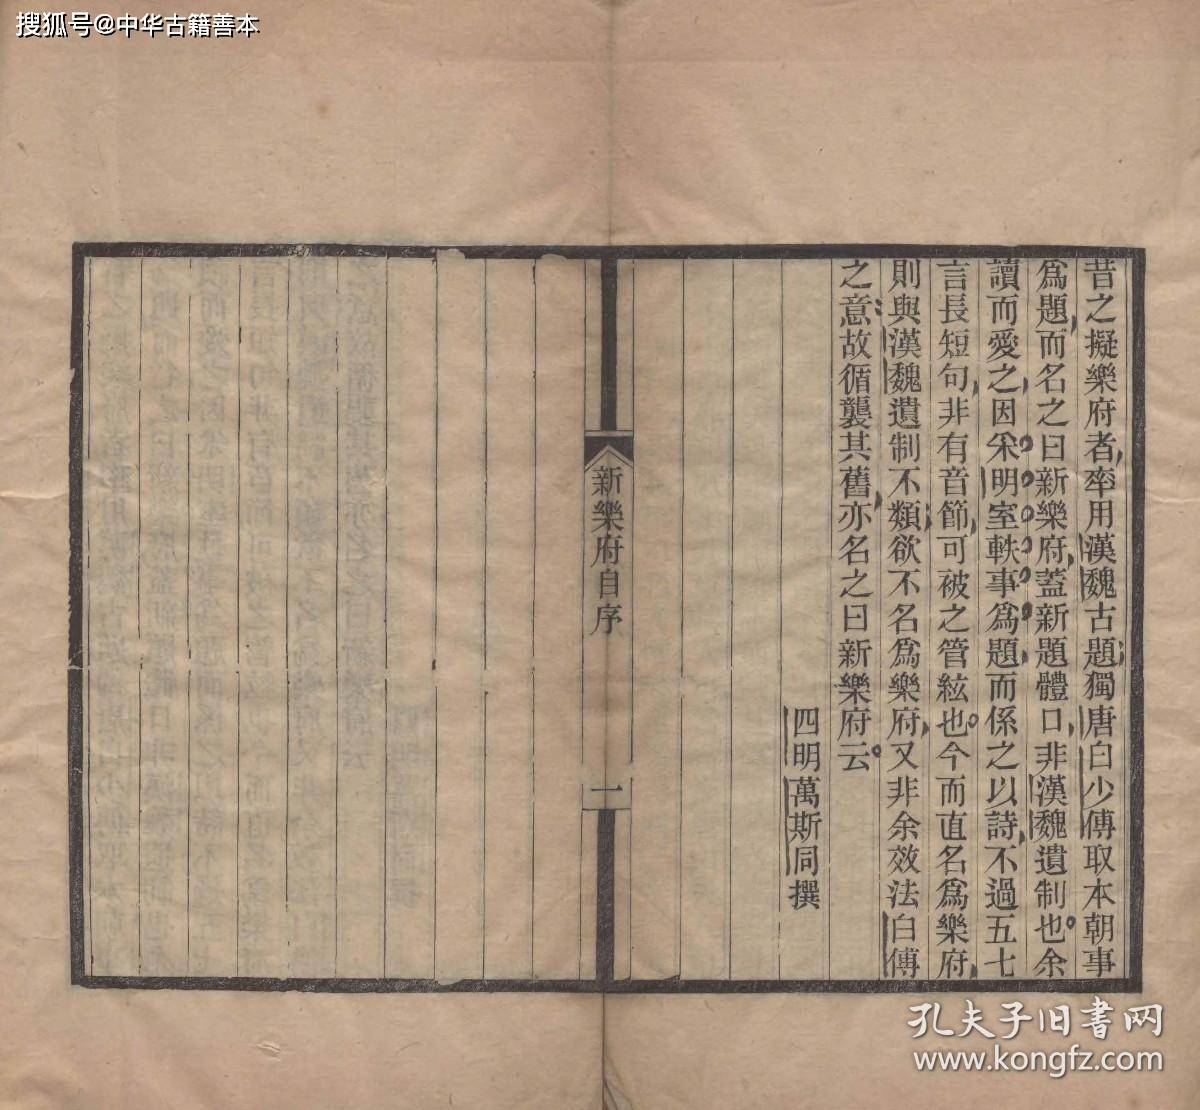 搜狐号@中华古籍善本
昔之擬樂府者率用漢魏古題獨唐白少傅取本朝事
爲題而名之曰新樂府蓋新題體口非漢魏遺制也余
讀而愛之因采明室軼事爲題而係之以詩不過五七
言長短句非有音節可被之管絃也今而直名爲樂府
則與漢魏遺制不類欲不名爲樂府又非余效法白傅
之意故循襲其舊亦名之曰新樂府云
四明萬斯同撰
新樂府自序
一
孔夫子旧书网
www.kongfz.com